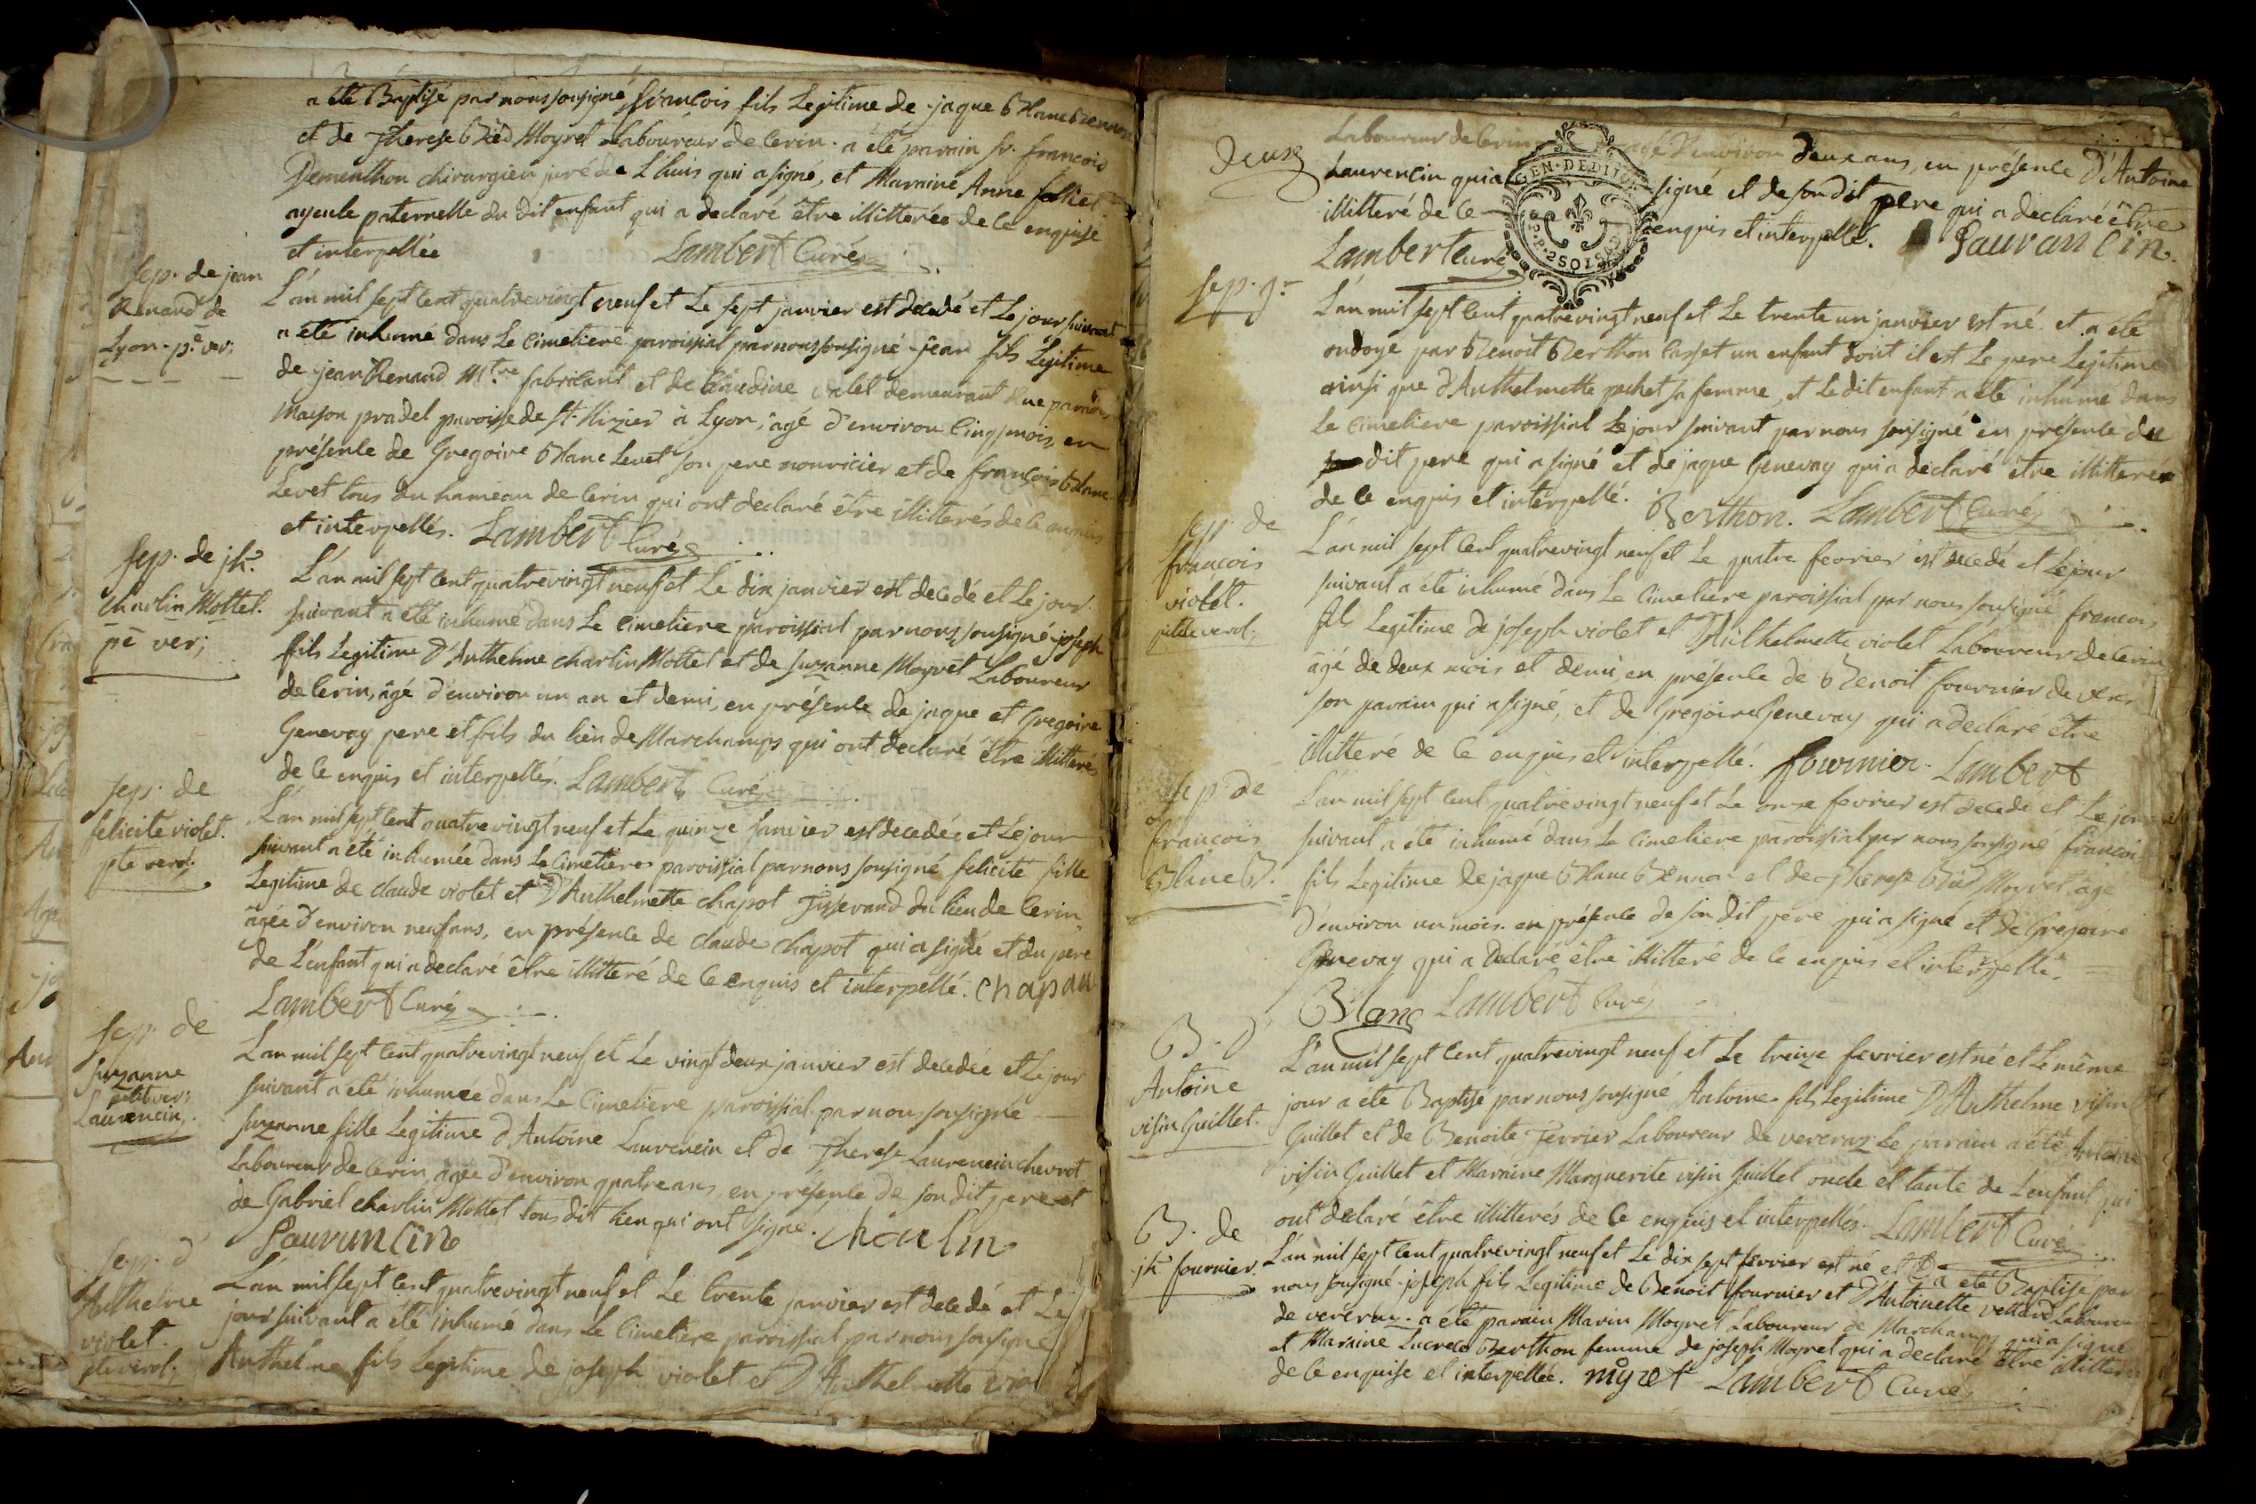 a été Baptisé par nous sousigné, françois fils Legitime de jaque Blanc Bennon
et de Therese Bied Moyret Laboureur de Cerin. a été parain Sr. françois
Dementhon chirurgien juré de L'huis qui a signé, et Maraine Anne
ayeule paternelle du dit enfant qui a declaré être illitterée de ce enquise
et interpellée Lambert Curé
Sep. de jean
Renand de
Lyon - pt. ver;
L'an mil sept cent quatrevingt neuf et Le sept janvier est decedé et Le jour suivant
a été inhumé dans Le Cimetiere paroissial par nous sousigné jean fils Legitime
de jean Renand Mtre fabricant et de Claudine valet demeurant rue
Maison pradel paroisse de St. Nizier à Lyon, agé d'environ cinq mois, en
présence de Gregoire Blanc Levet son pere nourricier et de françois Blanc
Levet tous du hameau de Cerin qui ont declaré être illitterés de ce enquis
et interpellés. Lambert Curé
Sep. de jh.
Charlin Mottet.
pt ver;
L'an mil sept cent quatrevingt neuf et Le dix janvier est decedé et Le jour
suivant a été inhumé dans Le Cimetiere paroissial par nous sousigné joseph
fils Legitime d'Anthelme charlin Mottet et de suzanne Moyret Laboureur
de Cerin, âgé d'environ un an et demi, en présence de jaque et Gregoire
Genevay pere et fils du lieu de Marchamps qui ont declaré être illitterés
de ce enquis et interpellés. Lambert Curé
Sep. de
felicité violet.
pte verol;
L'an mil sept cent quatrevingt neuf et Le quinze janvier est decedée et Le jour
suivant a été inhumée dans Le Cimetiere paroissial par nous sousigné felicité fille
Legitime de claude violet et D'Anthelmette chapot Tisserand du lieu de Cerin
âgée d'environ neuf ans, en présence de claude chapot qui a signé et du pere
de L'enfant qui a declaré être illitteré de ce enquis et interpellé. Chapau
Lambert Curé
Sep. de
Suzanne
petit ver;
Laurencin.
L'an mil sept cent quatrevingt neuf et Le vingt deux janvier est decedée et Le jour
suivant a été inhumée dans Le Cimetiere paroissial par nous sousigné
suzanne fille Legitime d'Antoine Laurencin et de Therese Laurencin chevrot
Laboureur de Cerin, agée d'environ quatre ans, en présence de son dit pere et
de Gabriel charlin Mottet tous dit lieu qui ont signé. Charlin
Lauvancin
Sep. d'
Anthelme
violet.
pte verol;
L'an mil sept cent quatrevingt neuf et Le trente janvier est decedé et Le
jour suivant a été inhumé dans Le Cimetiere paroissial par nous sousigné
Anthelme fils Legitime de joseph violet et D'Anthelmette
Deux
Laboureur de Cerin agé d'environ deux ans, en présence d'Antoine
Laurencin qui a signé et de son dit pere qui a declaré être
illitteré de ce enquis et interpellé. Lauvancin.
Lambert Curé
GEN. DE DIJON
Sep. 9r
L'an mil sept cent quatrevingt neuf et Le trente un janvier est né et a été
ondoyé par Benoit Berthon Casset un enfant dont il est Le pere Legitime
ainsi que d'Anthelmette pochet sa femme, et Le dit enfant a été inhumé dans
Le Cimetiere paroissial Le jour suivant par nous sousigné en présence du
dit pere qui a signé et de jaque Genevay qui a declaré être illitteré
de ce enquis et interpellé. Berthon. Lambert Curé
Sep. de
françois
violet.
petite verol;
L'an mil sept cent quatrevingt neuf et Le quatre fevrier est decedé et Le jour
suivant a été inhumé dans Le Cimetiere paroissial par nous sousigné françois
fils Legitime de joseph violet et D'Anthelmette violet Laboureur de Cerin,
âgé de deux mois et demi, en présence de Benoit fournier de
son parain qui a signé, et de Gregoire Genevay qui a declaré être
illitteré de ce enquis et interpellé. fournier. Lambert
Sep. de
françois
Blanc B.
L'an mil sept cent quatrevingt neuf et Le onze fevrier est decedé et Le jour
suivant a été inhumé dans Le Cimetiere paroissial par nous sousigné françois
fils Legitime de jaque Blanc Bennon et de Therese Bied Moyret, âgé
d'environ un mois. en présence de son dit pere qui a signé et de Gregoire
Genevay qui a declaré être illitteré de ce enquis et interpellé.
Blanc Lambert Curé
B. d'
Antoine
visin Guillet.
L'an mil sept cent quatrevingt neuf et Le treize fevrier est né et Le même
jour a été Baptisé par nous sousigné Antoine fils Legitime D'Anthelme visin
Guillet et de Benoite Ferrier Laboureur de vercraz Le parain a été Antoine
visin Guillet et Maraine Marguerite visin Guillet oncle et tante de L'enfant qui
ont declaré être illitterés de ce enquis et interpellés. Lambert Curé
B. de
jh fournier.
L'an mil sept cent quatrevingt neuf et Le dix sept fevrier est né et a été Baptisé par
nous sousigné joseph fils Legitime de Benoit fournier et d'Antoinette vettard Laboureur
de vercraz. a été parain Marin Moyret Laboureur de Marchamps qui a signé
et Maraine Lucrece Berthon femme de joseph Moyret qui a declaré être illitterée
de ce enquise et interpellée. myret Lambert Curé